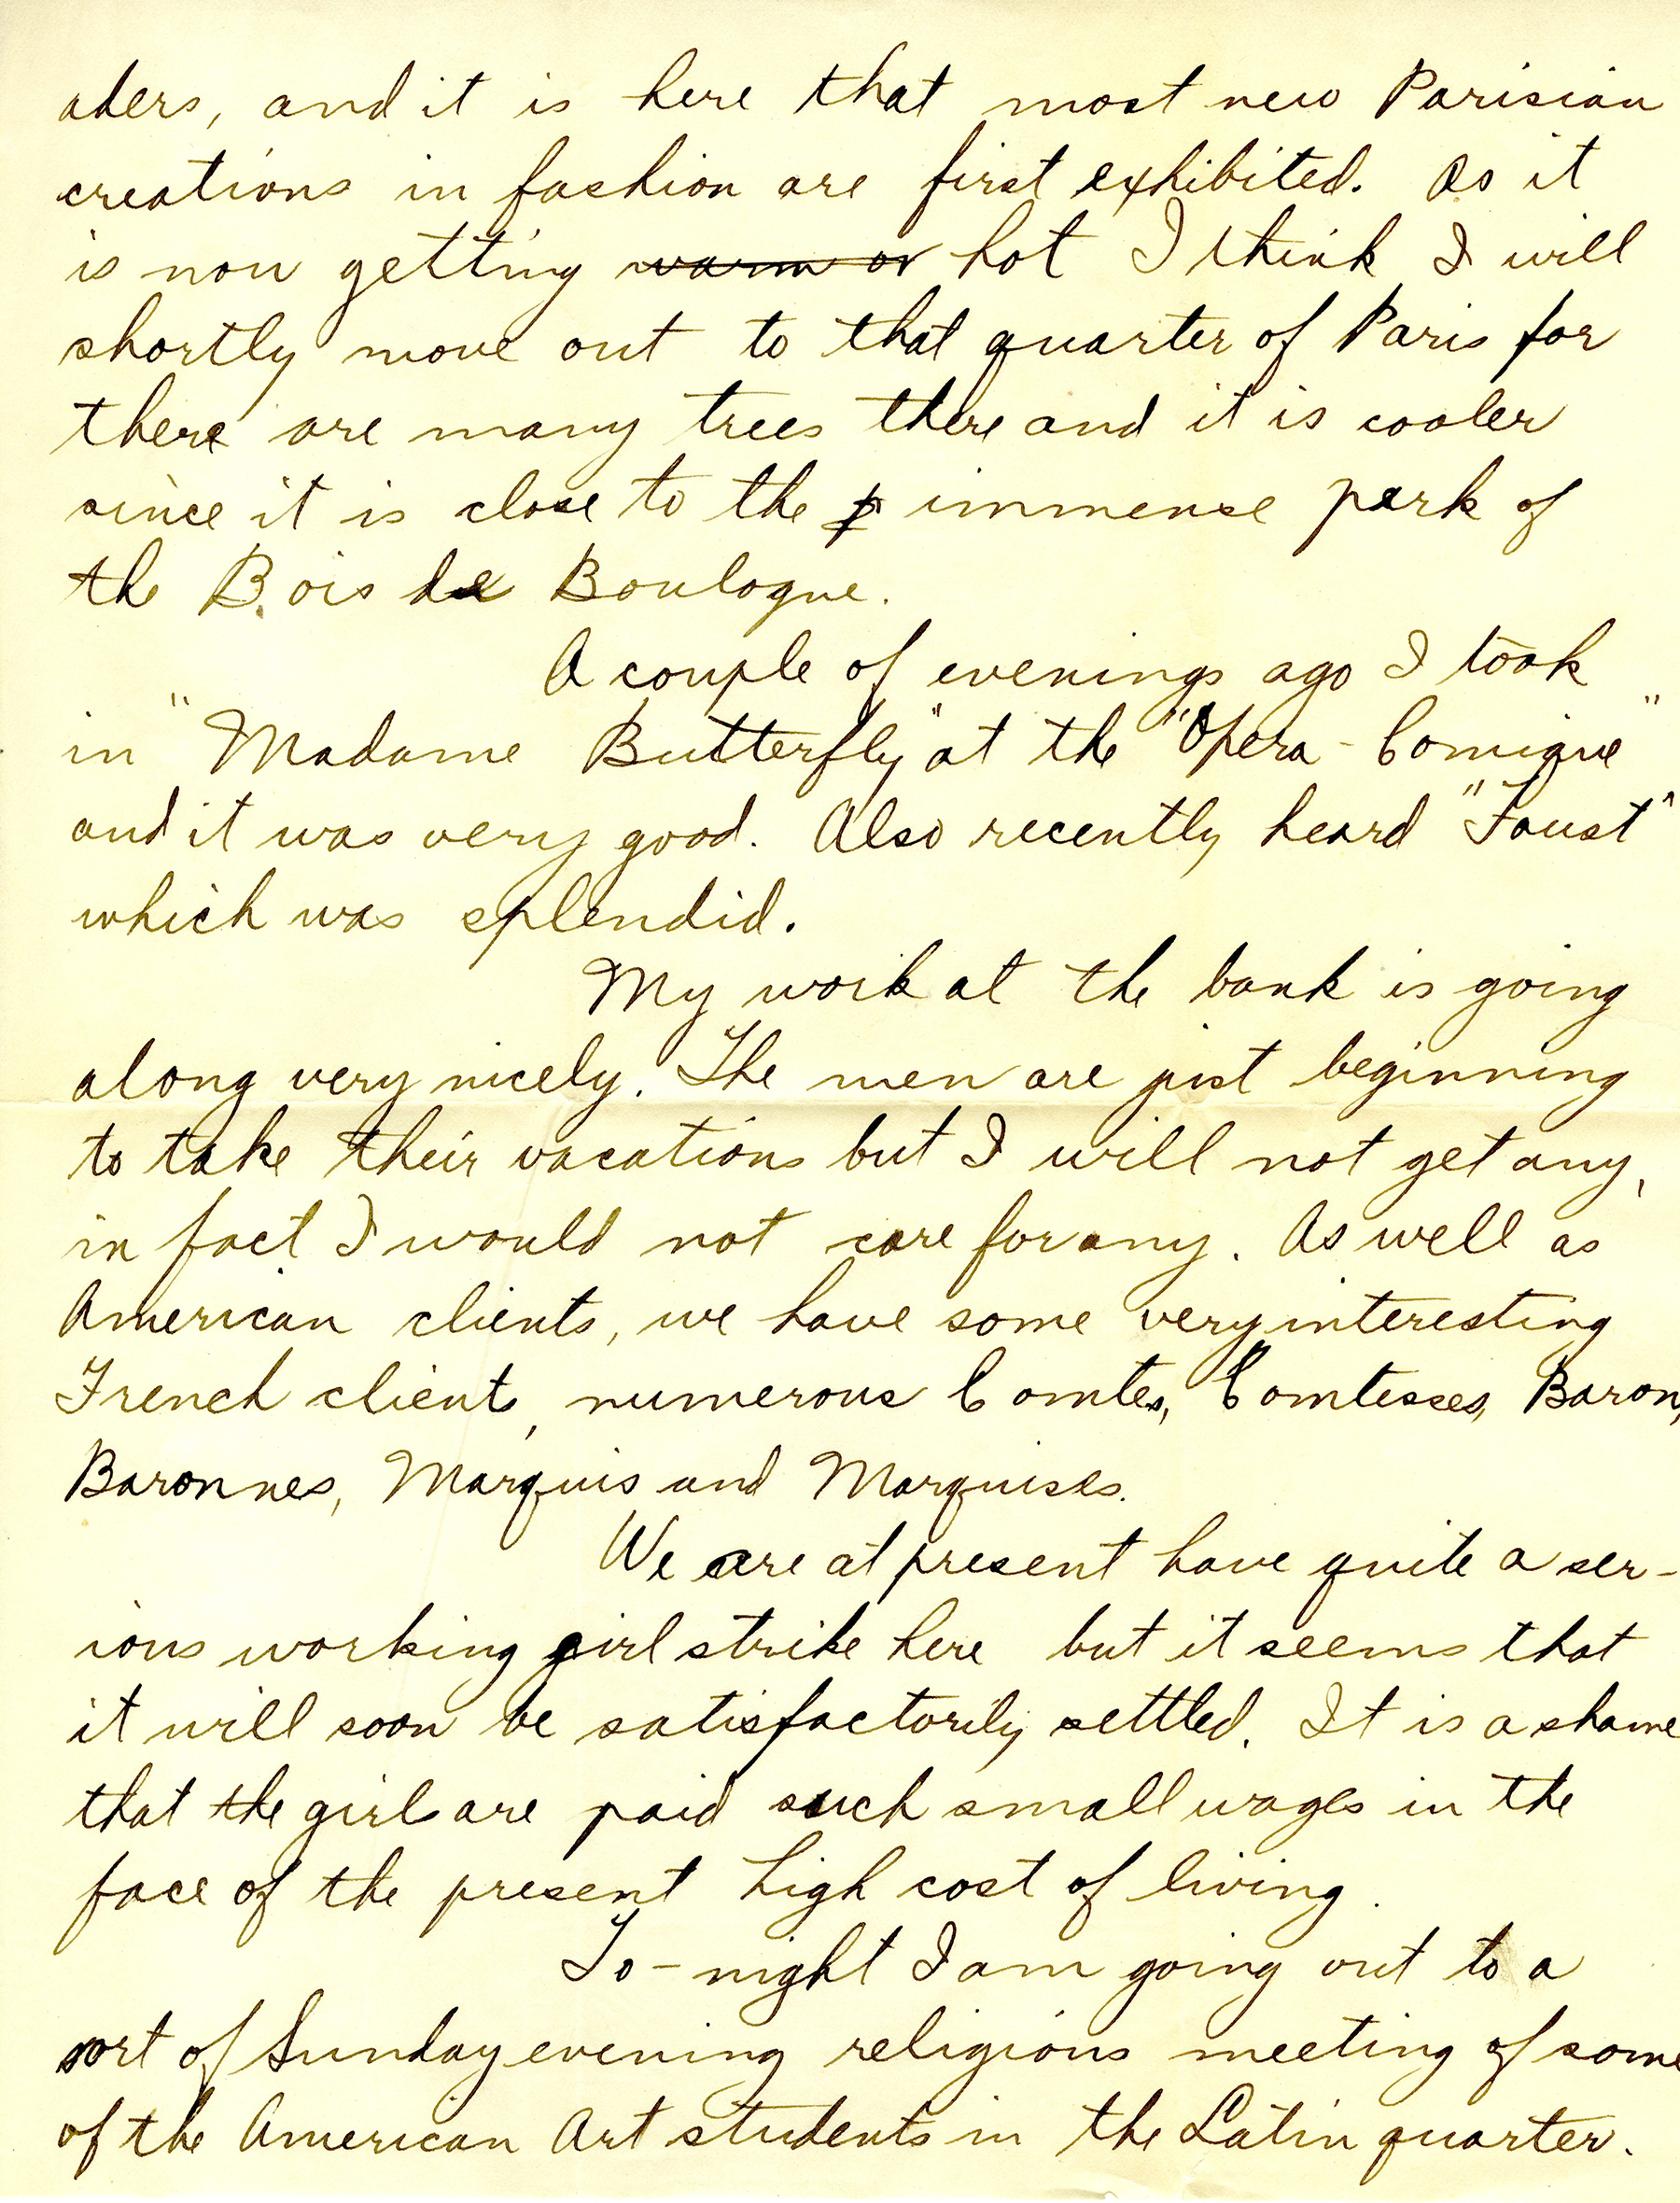 aders, and it is here that most new Parisian
creations in fashion are first exhibited. As it
is now getting warm or hot I think I will
shortly move out to that quarter of Paris for
there are many trees there and it is cooler
since it is close to the p immense park of
the Bois de Boulogne.
A couple of evenings ago I took
in "Madame Butterfly" at the "Opera-Comique"
and it was very good. Also recently heard "Faust"
which was splendid.
My work at the bank is going
along very nicely. The men are just beginning
to take their vacations but I will not get any,
in fact I would not care for any. As well as
American clients, we have some very interesting
French clients, numerous Comtes, Comtesses, Baron,
Baronnes, Marquis and Marquises.
We are at present have quite a ser-
ious working girl strike here but it seems that
it will soon be satisfactorily settled. It is a shame
that the girls are paid such small wages in the
face of the present high cost of living.
To-night I am going out to a
sort of Sunday evening religious meeting of some
of the American Art students in the Latin quarter.